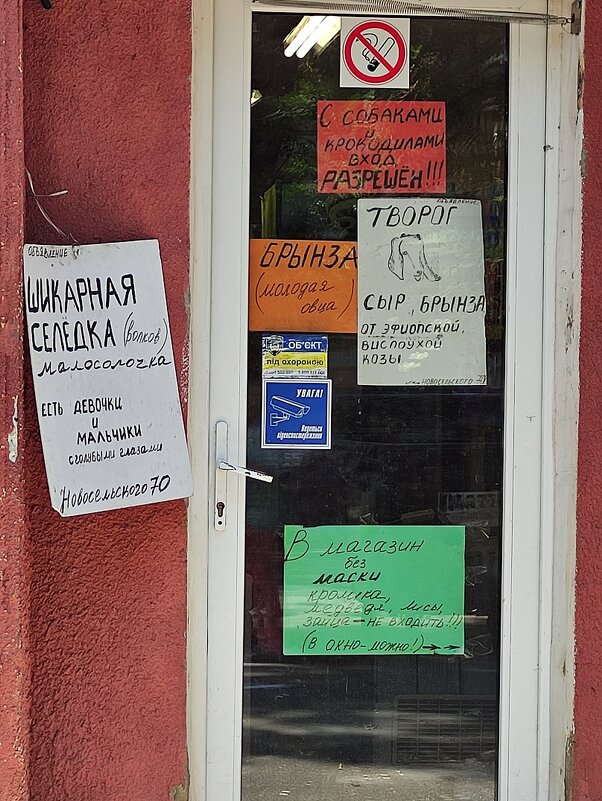 С СОБАКАМИ
и
КРОКОДИЛАМИ
ВХОД
РАЗРЕШЁН!!!
ОБЪЯВЛЕНИЕ
ТВОРОГ
СЫР, БРЫНЗА
ОТ ЭФИОПСКОЙ,
ВИСЛОУХОЙ
КОЗЫ
НОВОСЕЛЬСКОГО
БРЫНЗА
(молодая
овца)
ОБЪЯВЛЕНИЕ
ШИКАРНАЯ
СЕЛЁДКА (волков)
МАЛОСОЛОЧКА
ЕСТЬ ДЕВОЧКИ
И
МАЛЬЧИКИ
С ГОЛУБЫМИ ГЛАЗАМИ
Новосельского 70
ОБ'ЄКТ
під охороною
УВАГА!
Ведеться
відеоспостереження
В МАГАЗИН
без
МАСКИ
кролика,
медведя, лисы,
зайца - НЕ ВХОДИТЬ!!!
(В ОКНО-МОЖНО!)